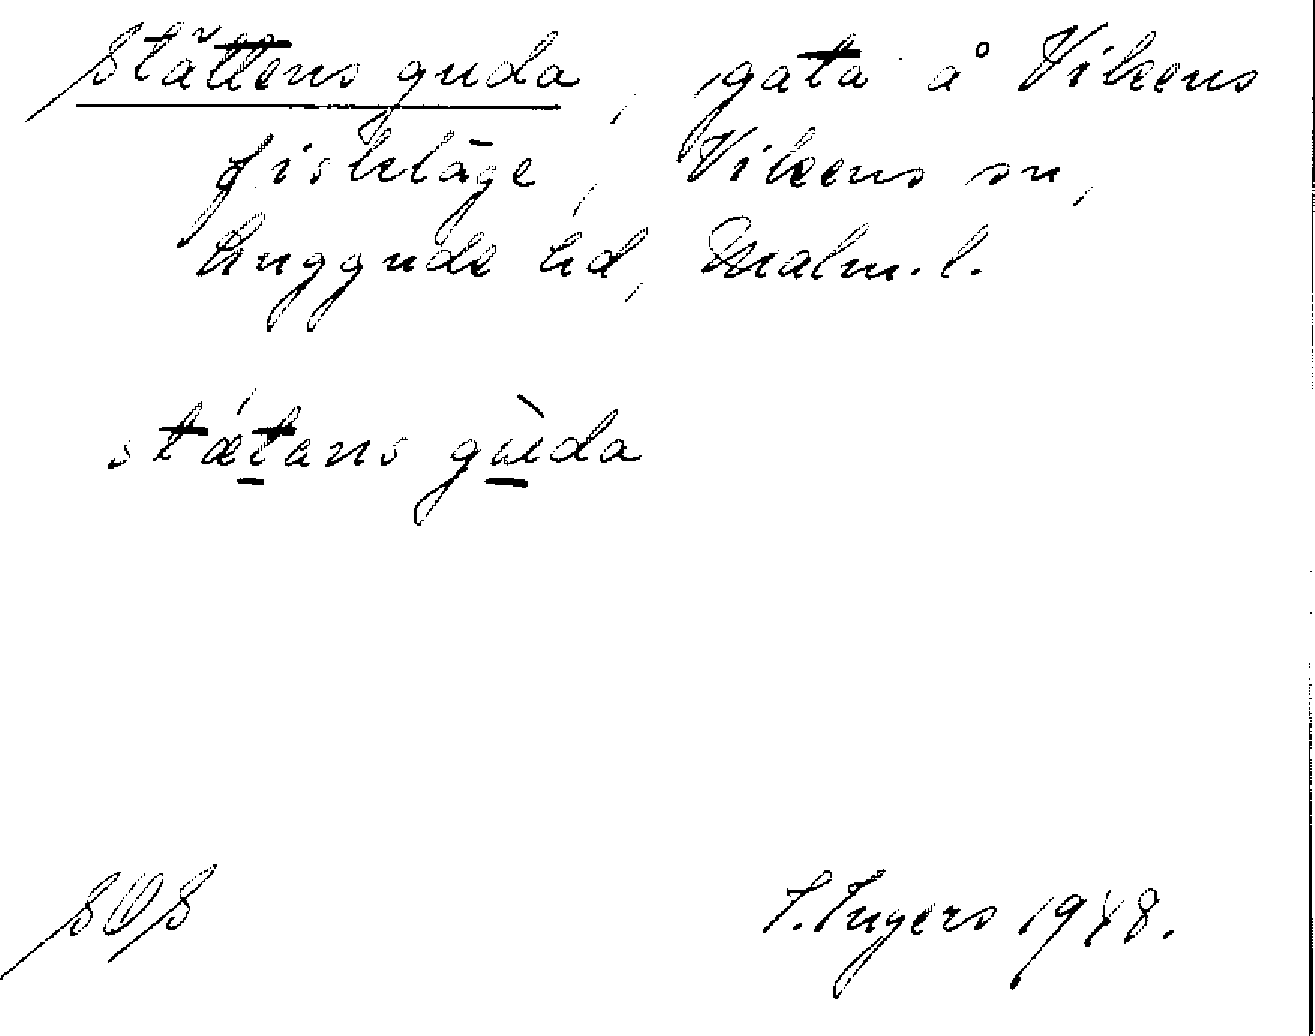 Stättens guda, gata å Vikens
fiskeläge, Vikens sn,
Luggude hd, Malm. l.
stǽtans gùda
SOS
I. Ingers 1948.